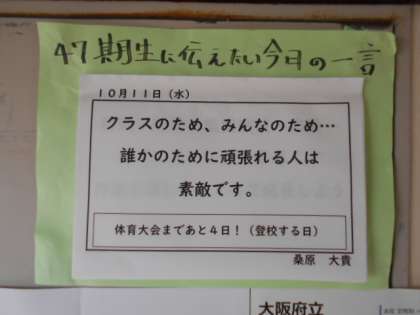 47期生に伝えたい今日の一言
10月11日（水）
クラスのため、みんなのため…
誰かのために頑張れる人は
素敵です。
体育大会まであと4日！（登校する日）
桑原　大貴
大阪府立